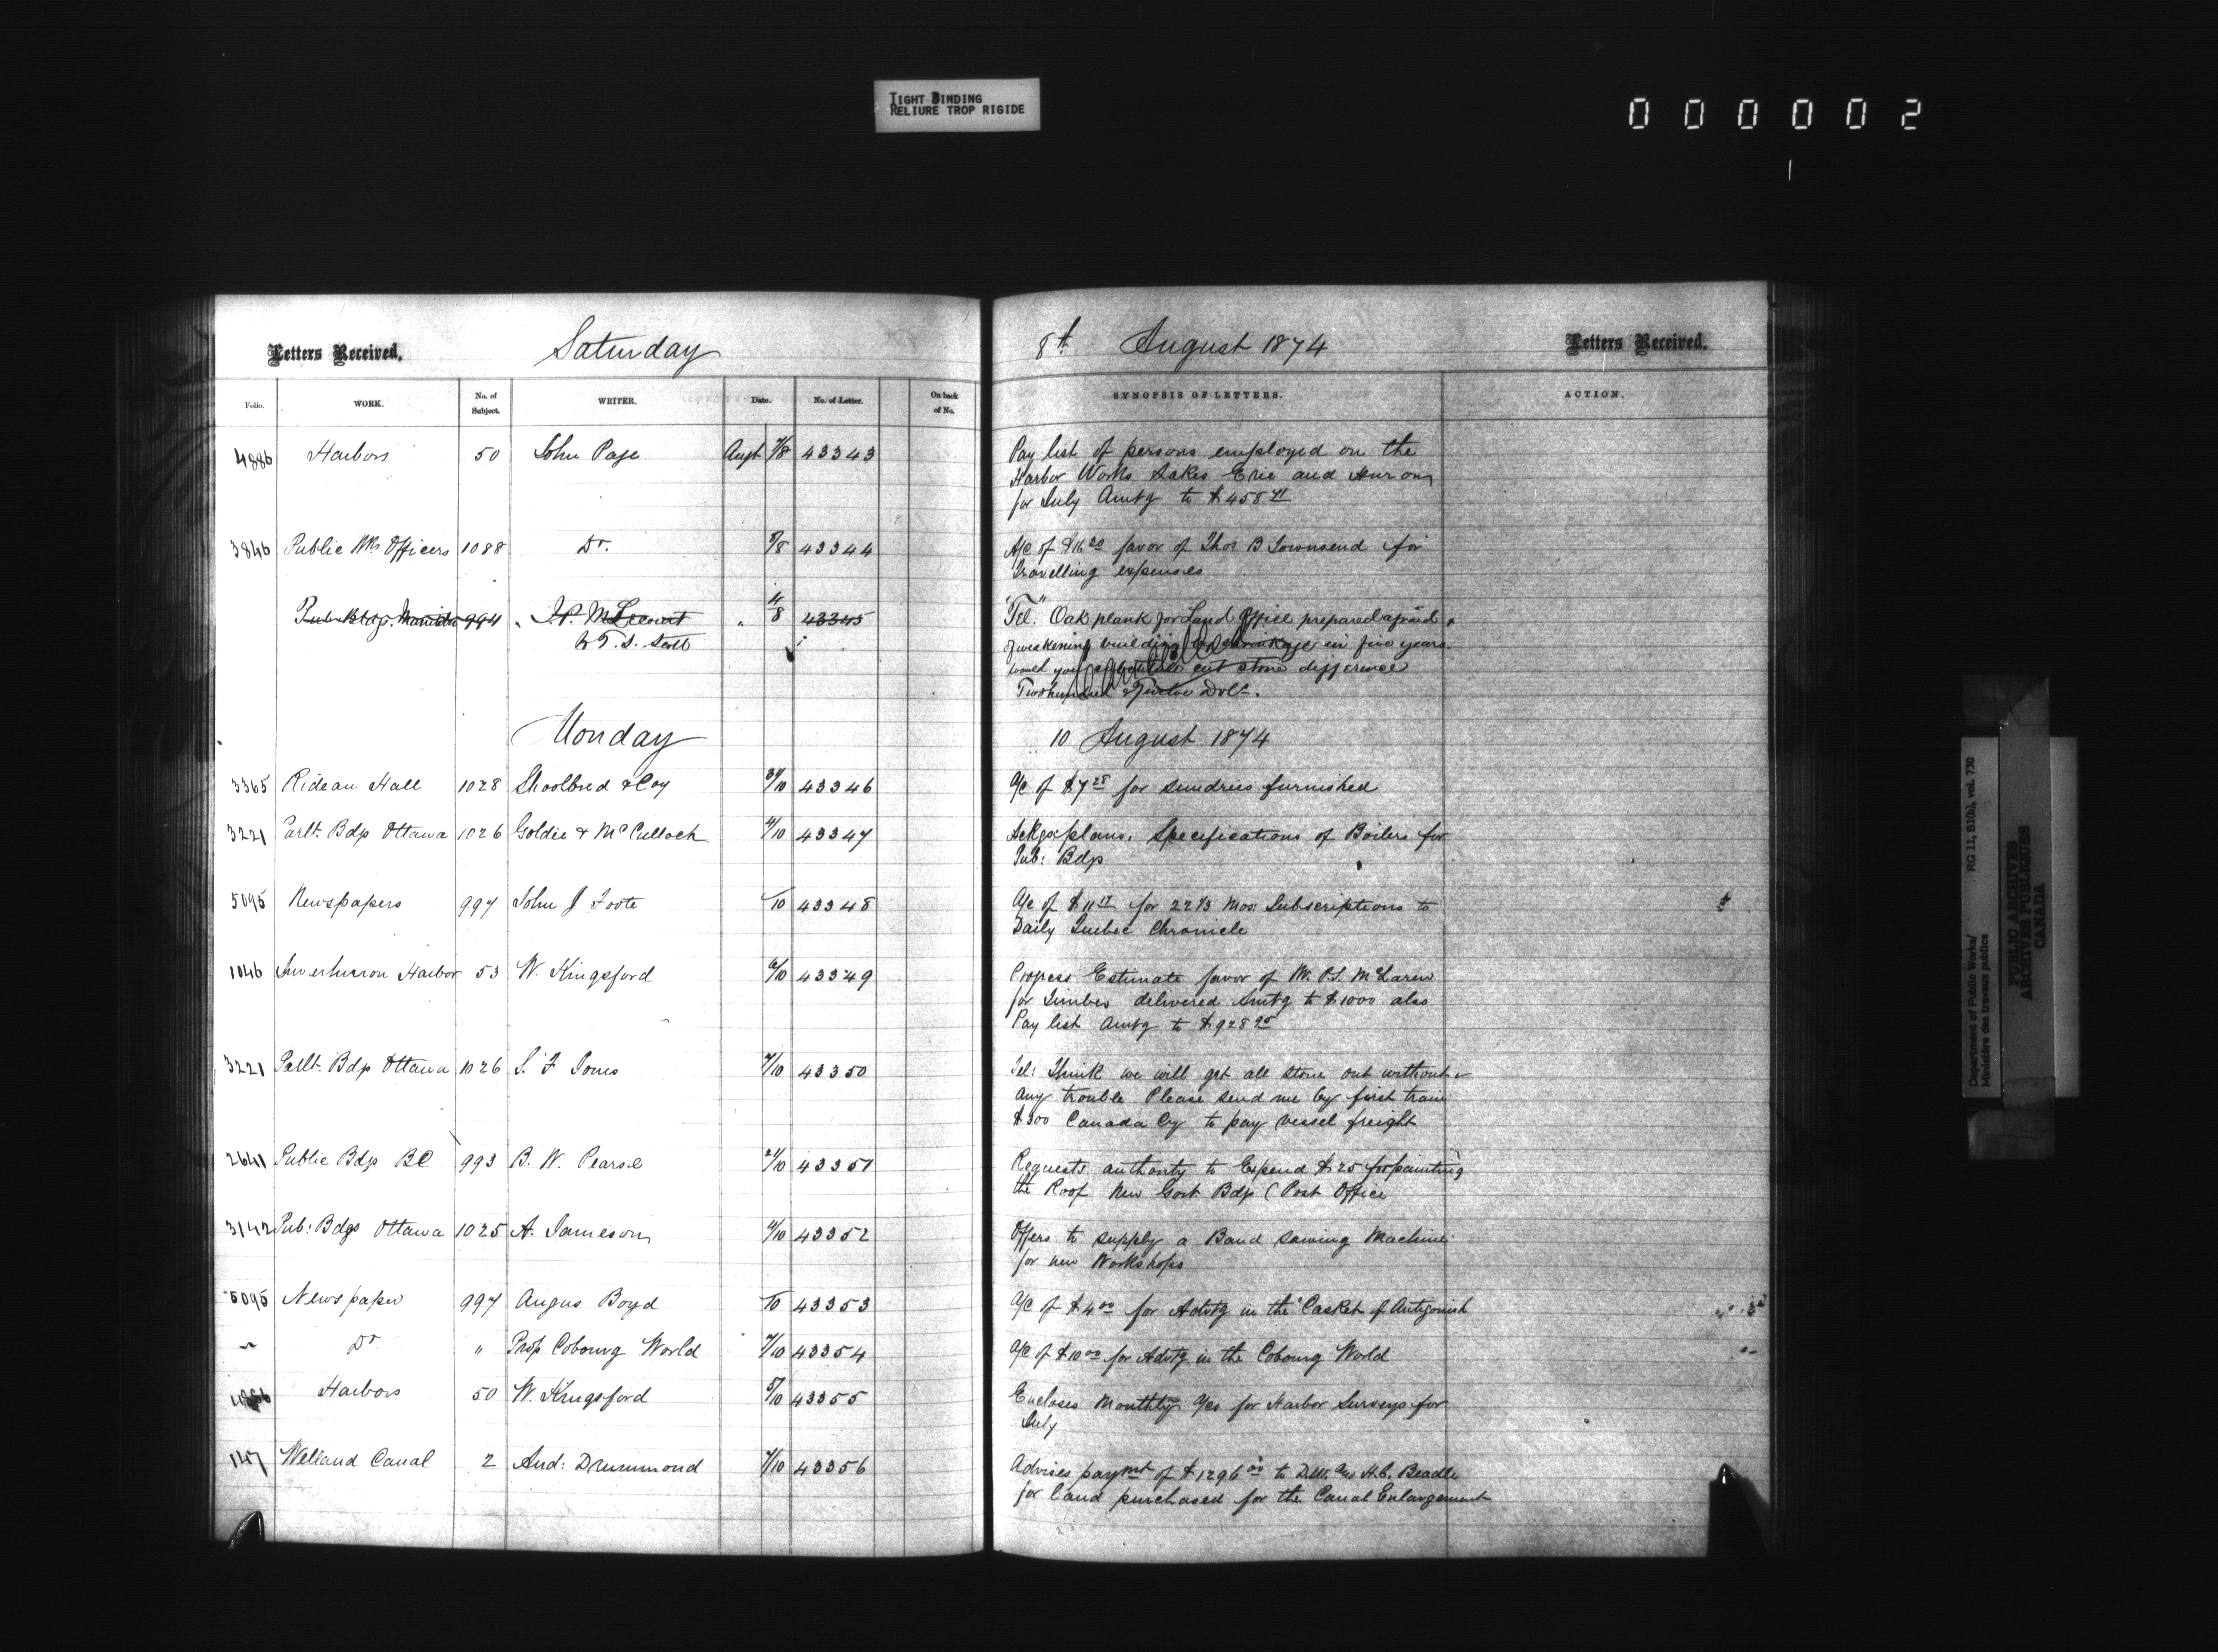 TIGHT BINDING
RELIURE TROP RIGIDE
000002
Letters Received. Saturday 8th August 1874 Letters Received.
Folio. WORK. No. of Subject. WRITER. Date. No. of Letter. On back of No. SYNOPSIS OF LETTERS. ACTION.
4886 Harbors 50 John Page Augt 7/8 43343 Pay list of persons employed on the
Harbor Works Lakes Erie and Huron
for July Amtg to $458
3846 Public Wks Officers 1088 Do. 5/8 43344 A/c of $16 20 favor of Thos B Townsend for
Travelling expenses
Pub. Bldgs. Manitoba 994 J.P. M Lecourt " 4/8 43345 "Tel." Oak plank for Land Office prepared afraid
to T.S. Scott of weakening building by shrinkage in five years
would you substitute cut stone difference
Two hundred & Twelve Dols.
Cancelled
Monday 10 August 1874
3365 Rideau Hall 1028 Shoolbred & Coy 31/10 43346 a/c of $7 28 for sundries furnished
3221 Parlt. Bdgs Ottawa 1026 Goldie & McCulloch 4/10 43347 Ackgs plans, Specifications of Boilers for
Pub: Bdgs
5095 Newspapers 997 John J Foote /10 43348 A/c of $11 17 for 22 1/3 Mos: Subscriptions to
Daily Quebec Chronicle
1046 Inverhuron Harbor 53 W. Kingsford 6/10 43349 Progress Estimate favor of Mr. P.S. McLaren
for Timber delivered Amtg to $1000 also
Pay list Amtg to $928 95
3221 Parlt. Bdgs Ottawa 1026 S. F Jones 7/10 43350 Tel: Think we will get all stone out without
any trouble Please send me by first train
$300 Canada Cy to pay vessel freight
2641 Public Bdgs BC 993 B. W. Pearse 21/10 43351 Requests authority to Expend $25 for painting
the Roof New Govt Bdgs (Post Office
3142 Pub: Bdgs Ottawa 1025 A. Jameson 4/10 43352 Offers to supply a Band Sawing Machine
for new Workshops
5095 Newspaper 997 Angus Boyd /10 43353 A/C of $4 00 for Advtg in the "Casket of Antigonish
" Do " Prop Cobourg World 7/10 43354 A/C of $10 00 for Advtg in the Cobourg World
4886 Harbors 50 W. Kingsford 5/10 43355 Encloses Monthly A/cs for Harbor Surveys for
July
1147 Welland Canal 2 And: Drummond 7/10 43356 Advises paymt of $1296 00 to D.W. and H.C. Beadle
for land purchased for the Canal Enlargement
Department of Public Works/ RG 11, B1(b), vol. 730
Ministère des travaux publics
PUBLIC ARCHIVES
ARCHIVES PUBLIQUES
CANADA